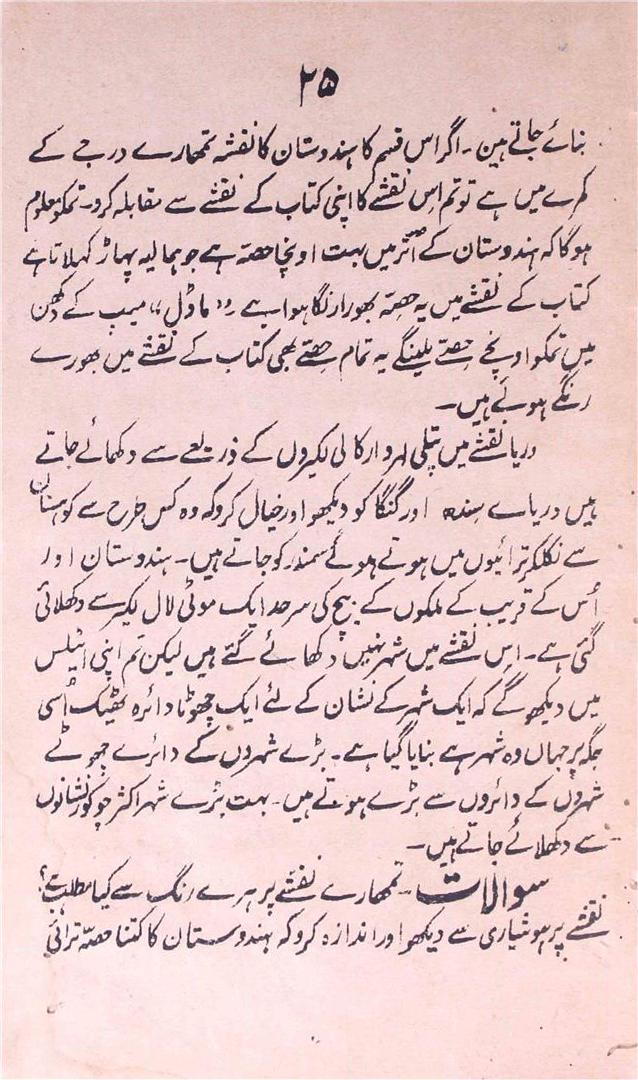 ۲۵
بنائے جاتے ہین۔ اگر اس قسم کا ہندوستان کا نقشہ تمھارے درجے کے
کمرے میں ہے تو تم اِس نقشے کا اپنی کتاب کے نقشے سے مقابلہ کرو۔ تمکو معلوم
ہوگا کہ ہندوستان کے اُتّر میں بہت اونچا حصّہ ہے جو ہمالیہ پہاڑ کہلاتا ہے
کتاب کے نقشے میں یہ حصّہ بھورا رنگا ہوا ہے ”ماڈل“ میپ کے دکھن
میں تمکو اونچے حصّے ملینگے یہ تمام حصّے بھی کتاب کے نقشے میں بھورے
رنگے ہوئے ہیں۔
دریا نقشے میں پتلی لہروار کالی لکیروں کے ذریعے سے دکھائے جاتے
ہیں دریاے سندھ اور گنگا کو دیکھو اور خیال کرو کہ وہ کس طرح سے کوہستان
سے نکلکر ترائیوں میں ہوتے ہوئے سمندر کو جاتے ہیں۔ ہندوستان اور
اُس کے قریب کے ملکوں کے بیچ کی سرحد ایک موٹی لال لکیر سے دکھلائی
گئی ہے۔ اِس نقشے میں شہر نہیں دکھائے گئے ہیں لیکن تم اپنی اٹیلس
میں دیکھو گے کہ ایک شہر کے نشان کے لئے ایک چھوٹا دائرہ ٹھیک اُسی
جگہ پر جہاں وہ شہر ہے بنایا گیا ہے۔ بڑے شہروں کے دائرے چھوٹے
شہروں کے دائروں سے بڑے ہوتے ہیں۔ بہت بڑے شہر اکثر چوکور نشانوں
سے دکھلائے جاتے ہیں۔
سوالات۔ تمھارے نقشے پر ہرے رنگ سے کیا مطلب ہے؟
نقشے پر ہوشیاری سے دیکھو اور اندازہ کرو کہ ہندوستان کا کتنا حصّہ ترائی